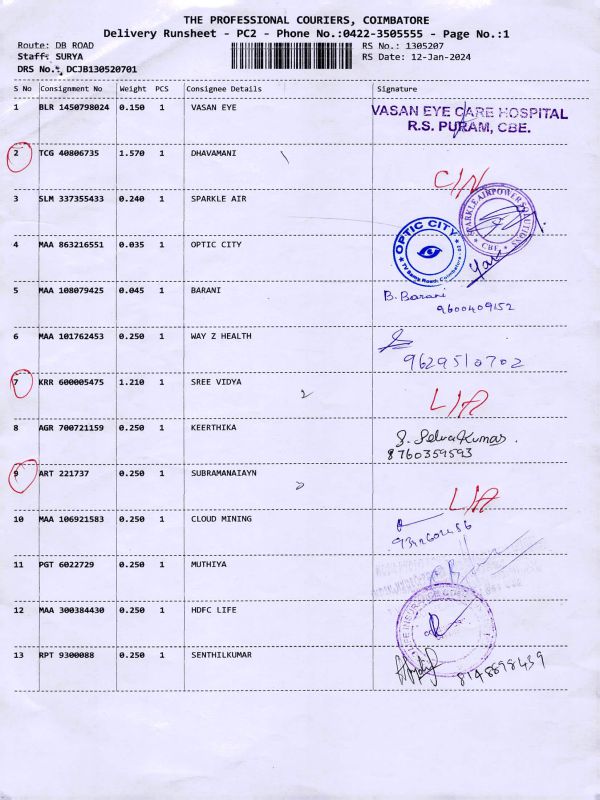 THE PROFESSIONAL COURIERS, COIMBATORE
Delivery Runsheet - PC2 - Phone No.:0422-3505555 - Page No.:1
Route: DB ROAD RS No.: 1305207
Staff: SURYA RS Date: 12-Jan-2024
DRS No.: DCJB130520701
S No Consignment No Weight PCS Consignee Details Signature
1 BLR 1450798024 0.150 1 VASAN EYE VASAN EYE CARE HOSPITAL
R.S. PURAM, CBE.
2 TCG 40806735 1.570 1 DHAVAMANI
C/N
3 SLM 337355433 0.240 1 SPARKLE AIR SPARKLE AIRPOWER SOLUTIONS
* CBE *
4 MAA 863216551 0.035 1 OPTIC CITY OPTIC CITY
5 MAA 108079425 0.045 1 BARANI B. Barani
9600409152
6 MAA 101762453 0.250 1 WAY Z HEALTH
9629510702
7 KRR 600005475 1.210 1 SREE VIDYA 2 L/A
8 AGR 700721159 0.250 1 KEERTHIKA S. Selvakumar.
8760359593
9 ART 221737 0.250 1 SUBRAMANAIAYN
L/A
10 MAA 106921583 0.250 1 CLOUD MINING
11 PGT 6022729 0.250 1 MUTHIYA
12 MAA 300384430 0.250 1 HDFC LIFE LIFE INSURANCE
13 RPT 9300088 0.250 1 SENTHILKUMAR 8148898439